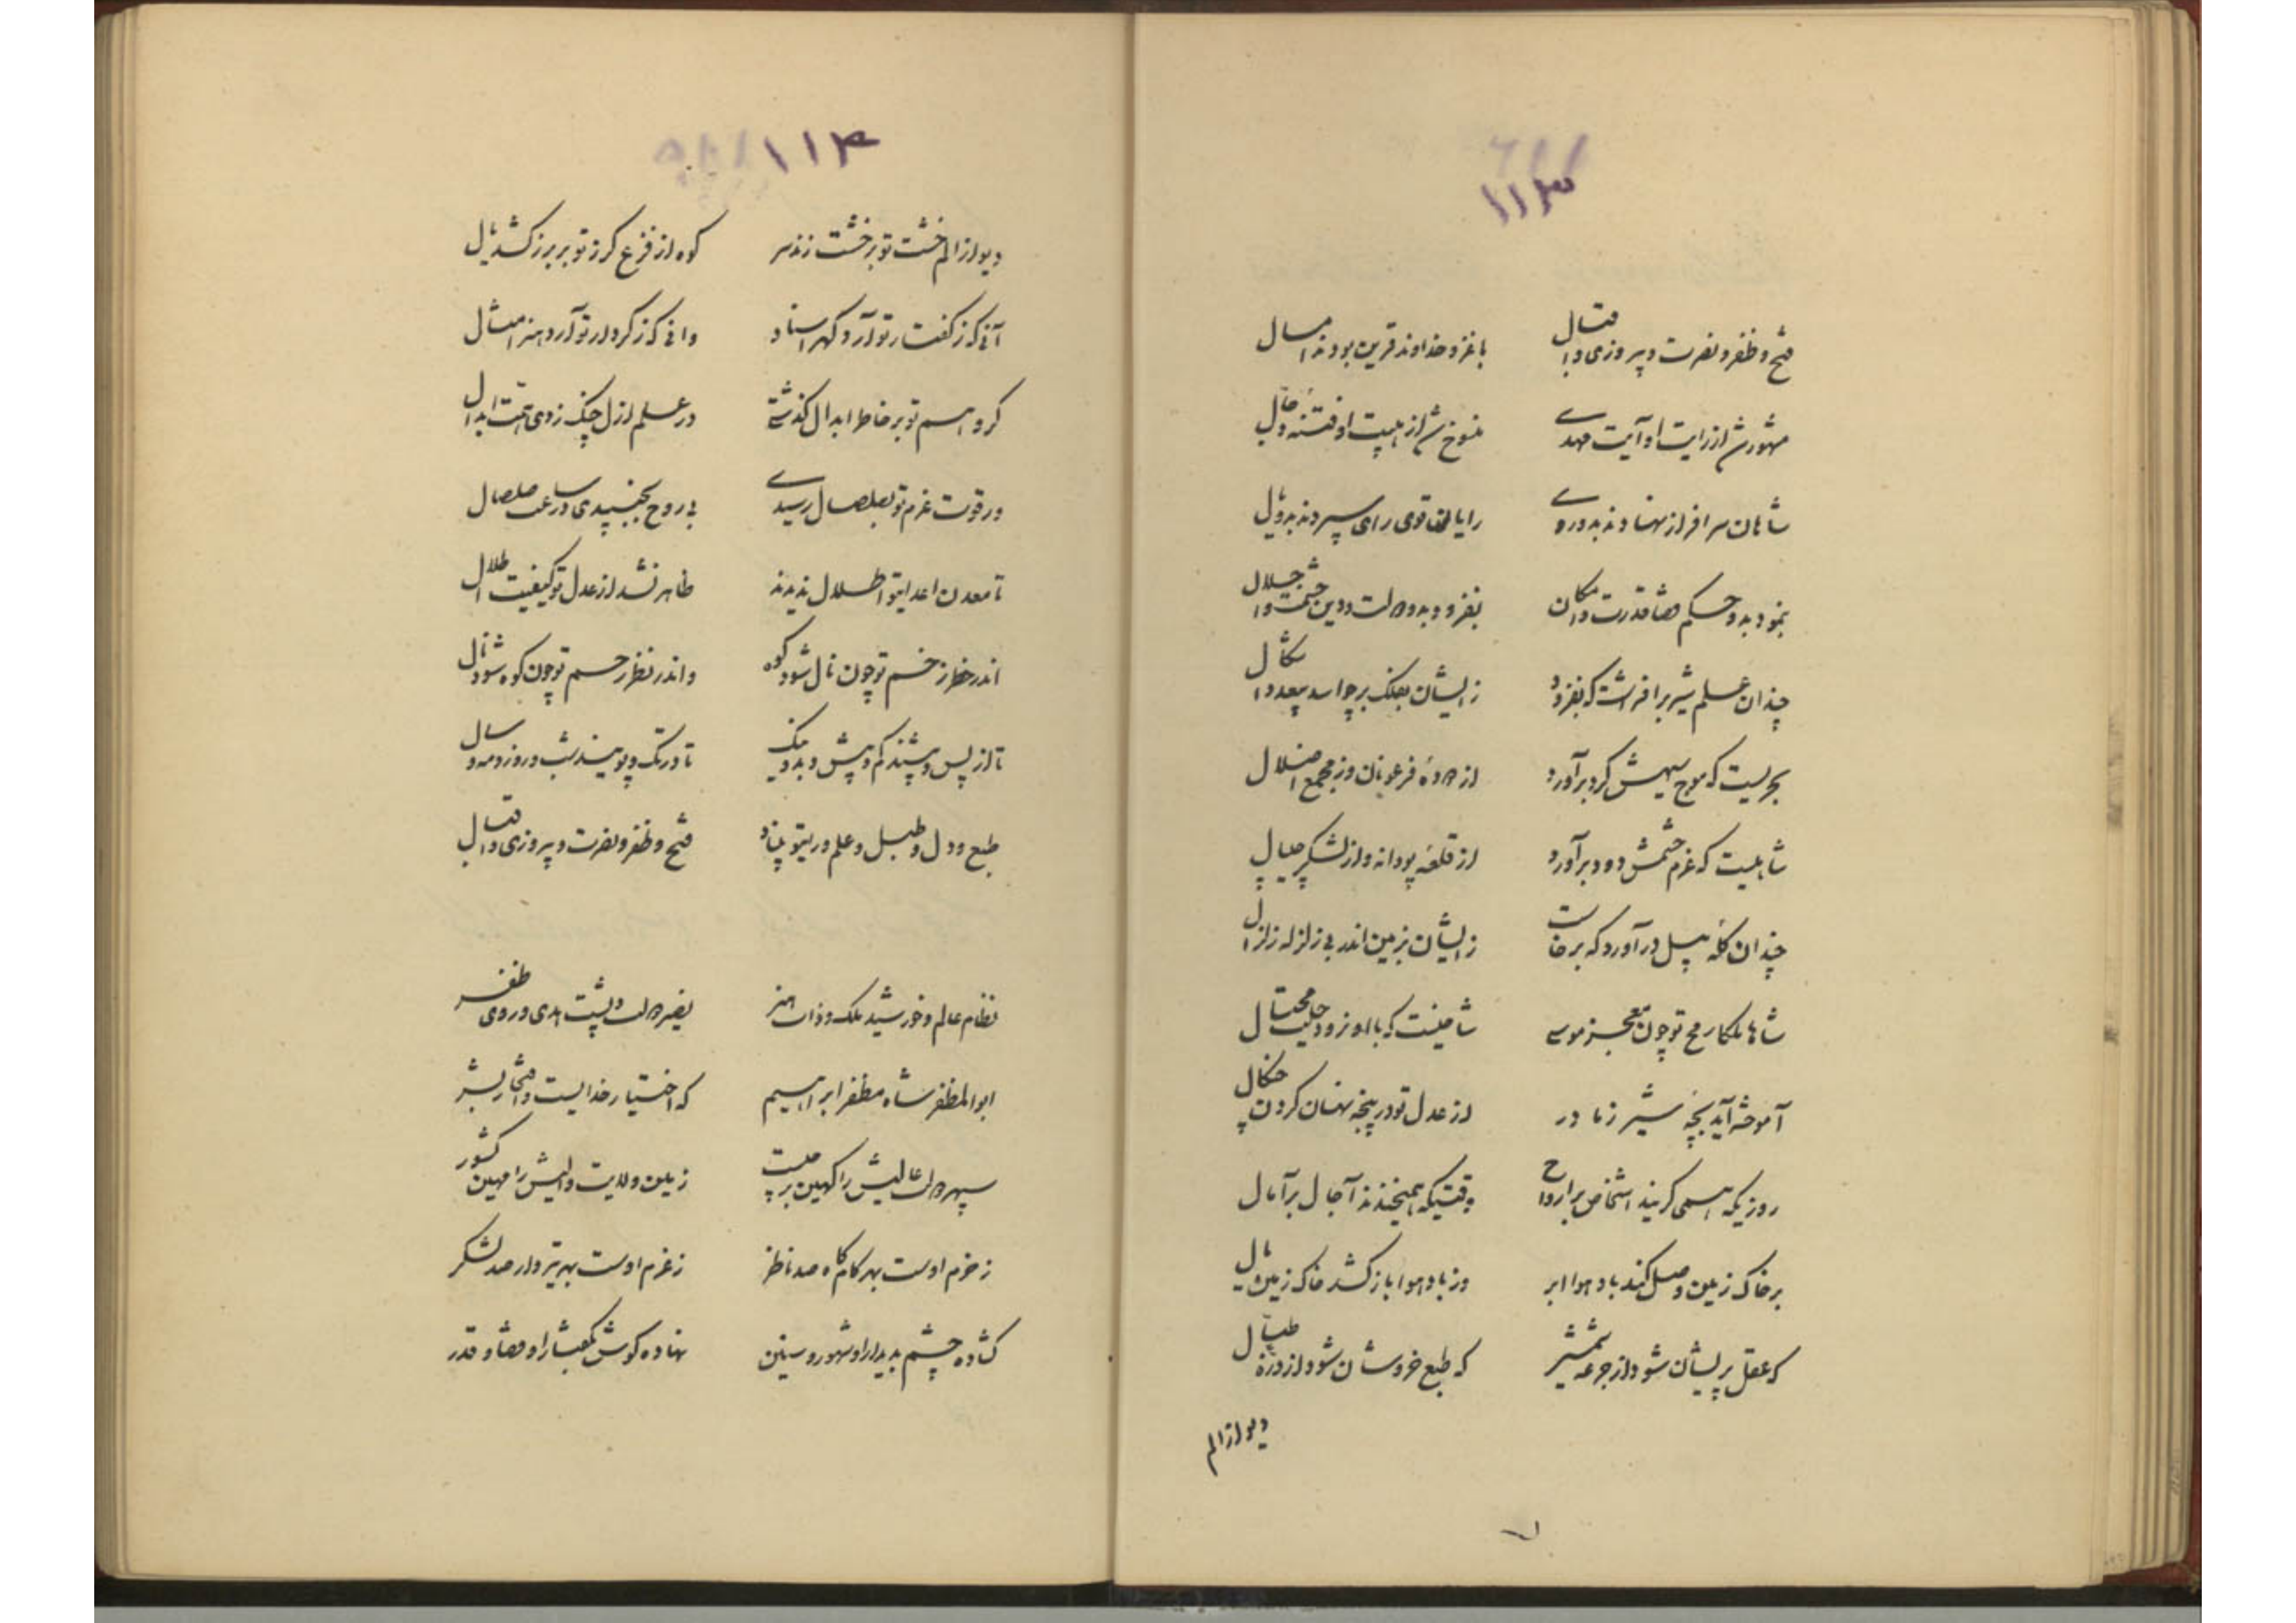 ۱۱۳
فتح و ظفر و نصرت و پیروزی و اقبال
با غزو خداوند قرین بودند امسال
مشهور شد از رایت او آیت مهدی
منسوخ شد از هیبت او فتنه دجال
شاهان سرافراز نهادند بدو روی
رایان قوی رای سپردند بدو یال
بنمود بدو حکم قضا قدرت و امکان
بفزود بدو دولت و دین حشمت و اجلال
چندان علم شیر برافراشت که بفزود
زایشان بفلک بر چو اسد بیعدد اشکال
بحریست که موج سپهش گرد برآورد
از دوده فرعونان وز مجمع اضلال
شاهیست که عزم حشمش دود برآورد
از قلعه بودانه و از لشکر جیپال
چندان گله پیل درآورد که برخاست
زایشان بزمین اندر بی زلزله زلزال
شاها ملکا رمح تو چون معجز موسی
شد آموخته آید بچه شیر ز مادر
از عدل تو در پنجه نهان کردن چنگال
روزیکه همی گریند اشخاص بر ارواح
وقتیکه همیخندند آجال بر آمال
بر خاک زمین وصل کند باد هوا ابر
وز باد هوا باز کشد خاک زمین بال
که عقل پریشان شود از جرعه شمشیر
که طبع خروشان شود از دره طبال
دیو از الم
۱۱۴
دیو از الم خشت تو بر خشت زند سر
کوه از فزع گرز تو بر برز کشد یال
آنی که ز گفتار تو آرد گهر اسناد
وانی که ز کردار تو آرد هنر امثال
گر وهم تو بر خاطر ابدال گذشتی
در علم ازل چنگ زدی همت ابدال
ور قوت عزم تو بصلصال رسیدی
بی روح بجنبیدی در ساعت صلصال
تا معدن اعدا تو اطلال ندیدند
ظاهر نشد از عدل تو کیفیت اطلال
اندر خطر زخم تو چون نال شود کوه
واندر نظر رحم تو چون کوه شود نال
تا از پس و پیشند کم و بیش و بد و نیک
تا در تک و پویند شب و روز و مه و سال
طبع و دل و طبل و علم و ریتو بیناد
فتح و ظفر و نصرت و پیروزی و اقبال
نظام عالم و خورشید ملک و ذات هنر
نصیر دولت و پشت هدی و روی ظفر
ابوالمظفر شاه مظفر ابراهیم
که اختیار خدایست و افتخار بشر
سپهر دولت عالیش را کهین برپیست
زمین ولایت والیش را مهین کشور
ز حزم اوست بهر کامگاه صد ناظر
ز عزم اوست بهر تیردار صد لشکر
گشاده چشم بدیدار او شهور و سنین
نهاده گوش بگفتار او قضا و قدر